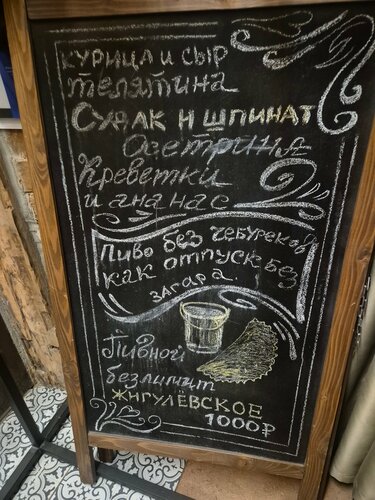 КУРИЦА И СЫР
ТЕЛЯТИНА
СУДАК И ШПИНАТ
ОСЕТРИНА
Креветки
и ананас
Пиво без чебуреков
как отпуск без
загара.
Пивной
безлимит
ЖИГУЛЁВСКОЕ
1000₽